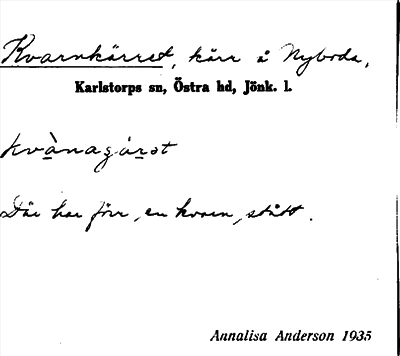 Kvarnkärret, kärr å Nyboda,
Karlstorps sn, Östra hd, Jönk. l.
Där har förr, en kvarn, stått.
Annalisa Anderson 1935